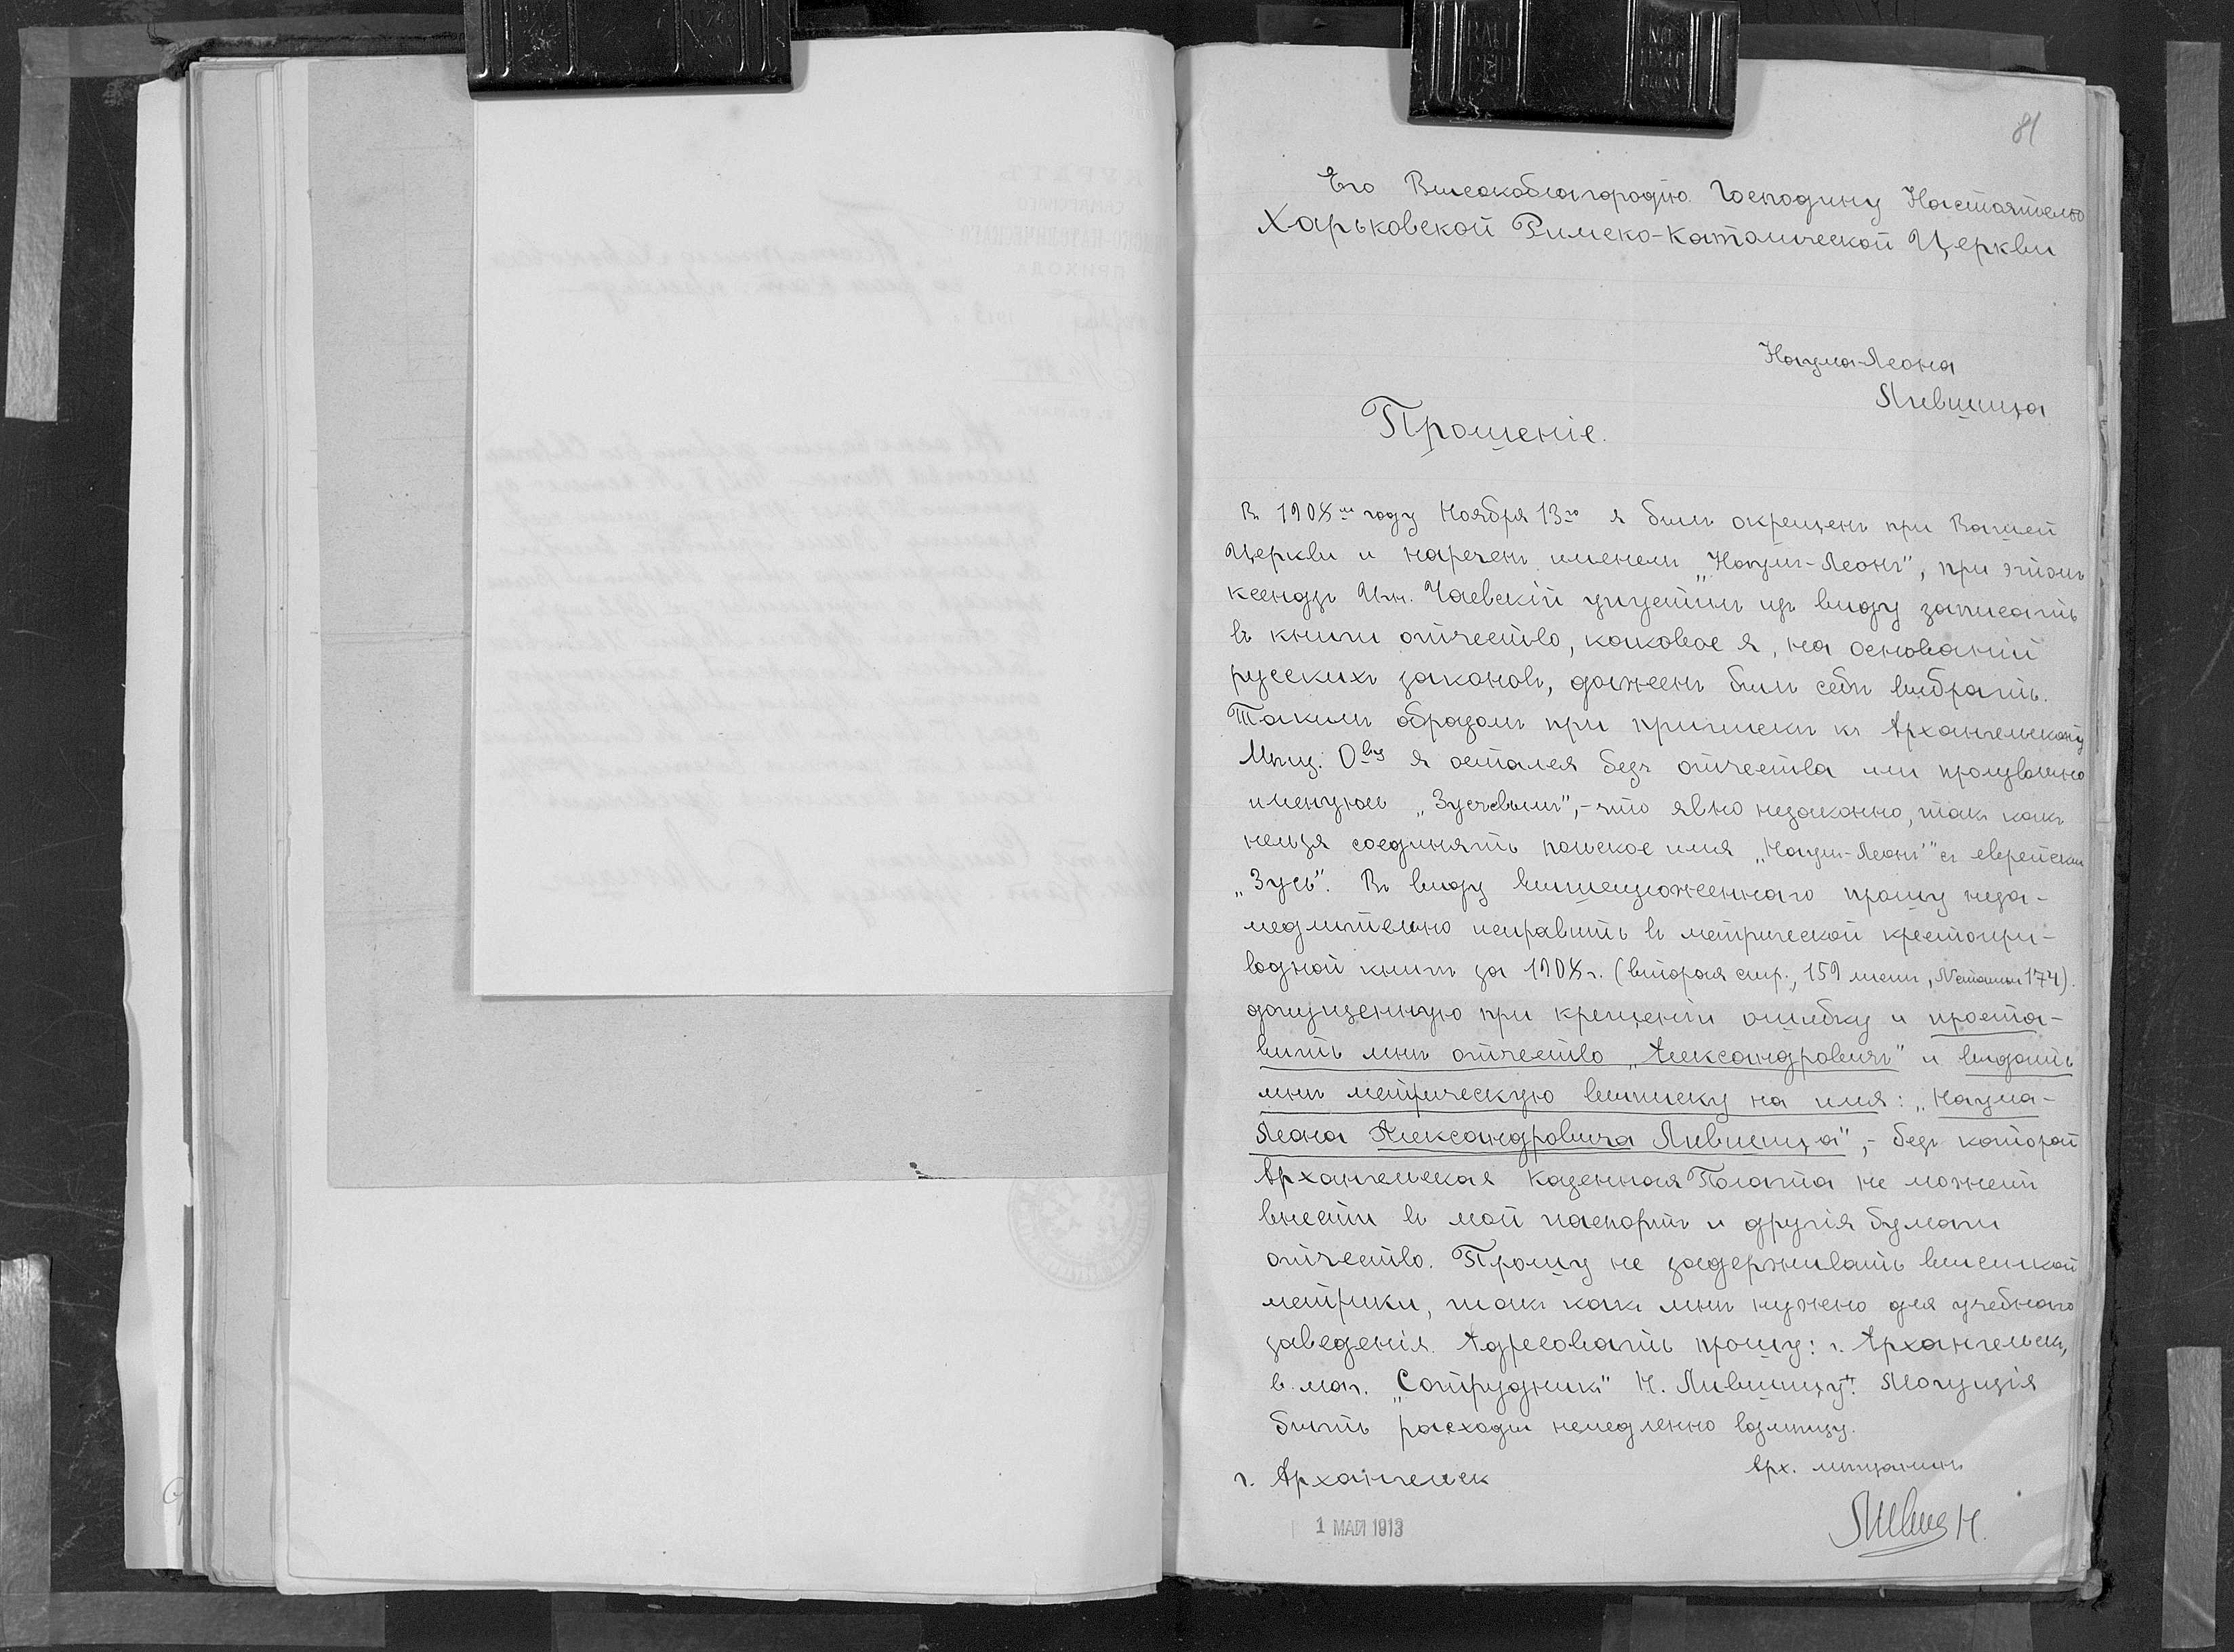 81
Его Высокоблагородію Господину Настоятелю
Харьковской Римско-Католической Церкви
Наума-Леона
Лившица
Прошеніе.
Въ 1908ᵐ году Ноября 13го я былъ окрещенъ при Вашей
Церкви и нареченъ именемъ „Наумъ-Леонъ", при этомъ
ксендзъ Чаевскій упустилъ изъ виду записать
въ книги отчество, каковое я, на основаніи
русскихъ законовъ, долженъ былъ себѣ выбрать.
Такимъ образомъ при припискѣ къ Архангельскому
Мѣщ. Овѹ я остался безъ отчества или произвольно
именуюсь „Зусевымъ",-что явно незаконно, такъ какъ
нельзя соединять польское имя „Наумъ-Леонъ" съ еврейскимъ
„Зусь". Въ виду вышеизложеннаго прошу неза-
медлительно исправить въ метрической
книгѣ за 1908г. (вторая стр., 159 листъ, 174).
допущенную при крещеніи ошибку и проста-
вить мнѣ отчество „Александровичъ" и выдать
мнѣ метрическую выписку на имя: „Наума-
Леона Александровича Лившица",- безъ которой
Архангельская Казенная Палата не можетъ
внести въ мой паспортъ и другія бумаги
отчество. Прошу не задерживать высылкой
метрики, такъ какъ мнѣ нужно для учебнаго
заведенія. Адресовать прошу: г. Архангельскъ,
в маг. „Сотрудникъ" Н. Лившицу". Могущія
быть расходы немедленно возмѣщу.
г. Архангельск
Арх. мѣщанинъ
1 МАЙ 1913
Лившиц Н.